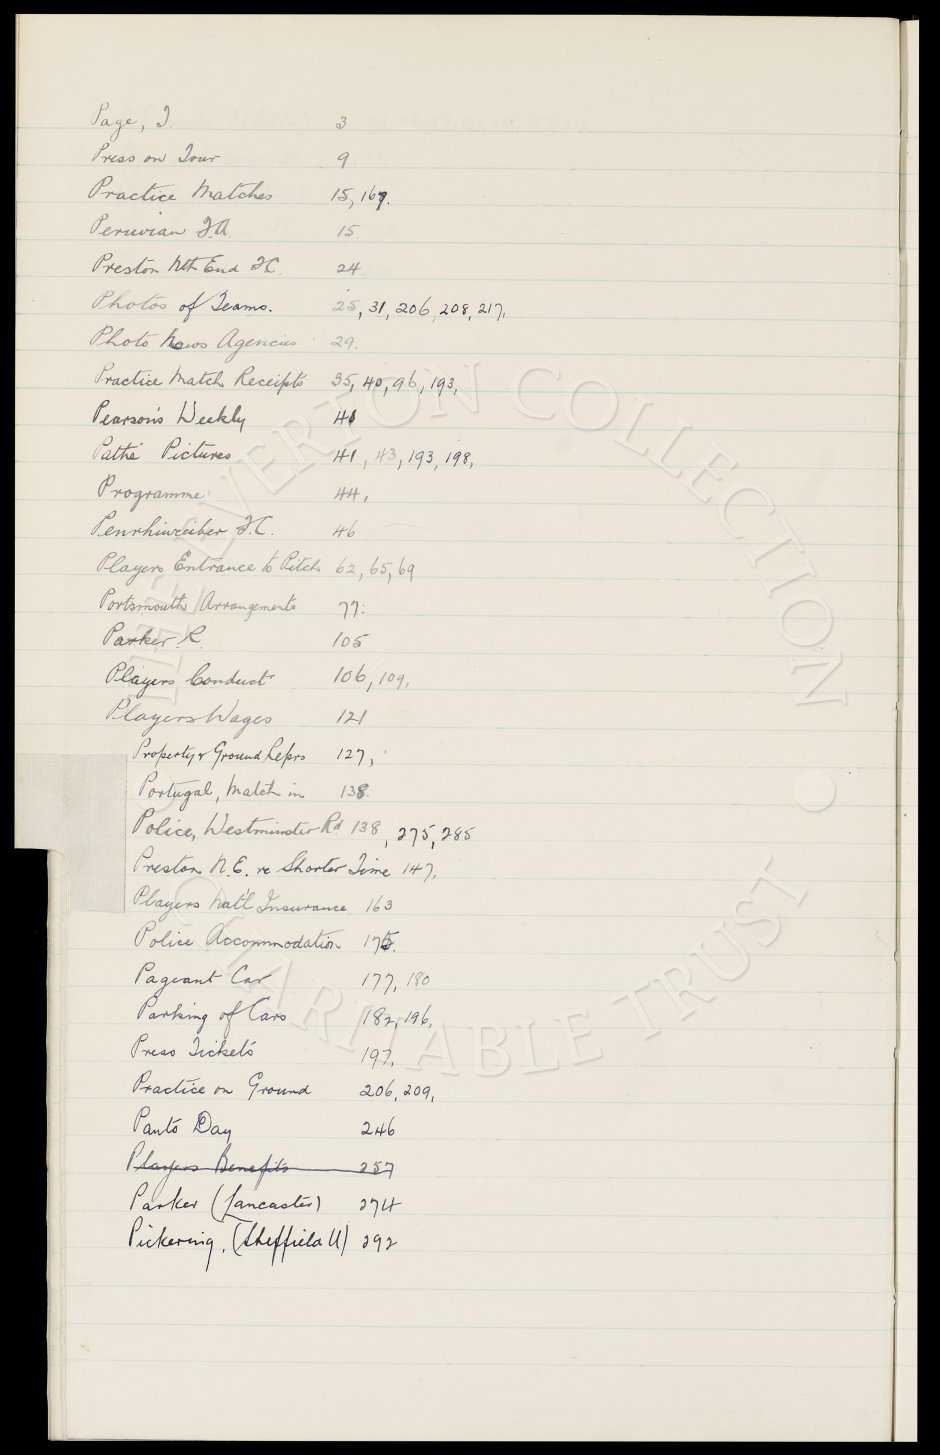 Page, T. 3
Press on Tour 9.
Practice Matches 15, 167.
Peruvian F.A. 15.
Preston Nth End F.C. 24
Photos of Teams. 25, 31, 206, 208, 217,
Photo News Agencies 29.
Practice Match Receipts 35, 40, 96, 193,
Pearson's Weekly 41
Pathé Pictures 41, 43, 193, 198,
Programme 44,
Penrhiwceiber F.C. 46
Players Entrance to Pitch 62, 65, 69
Portsmouth Arrangements 77.
Parker. R. 105
Players Conduct 106, 109,
Players Wages 121
Property & Ground Reprs 127,
Portugal, Match in 138.
Police, Westminster Rd 138, 275, 285
Preston N.E. re Shorter Time 147,
Players Nat'l Insurance 163
Police Accommodation 175.
Pageant Car 177, 180
Parking of Cars 182, 196,
Press Tickets 197,
Practice on Ground 206, 209,
Pants Day 246
Players Benefits 257
Parker (Lancaster) 274
Pickering, (Sheffield U) 292
THE EVERTON COLLECTION
CHARITABLE TRUST